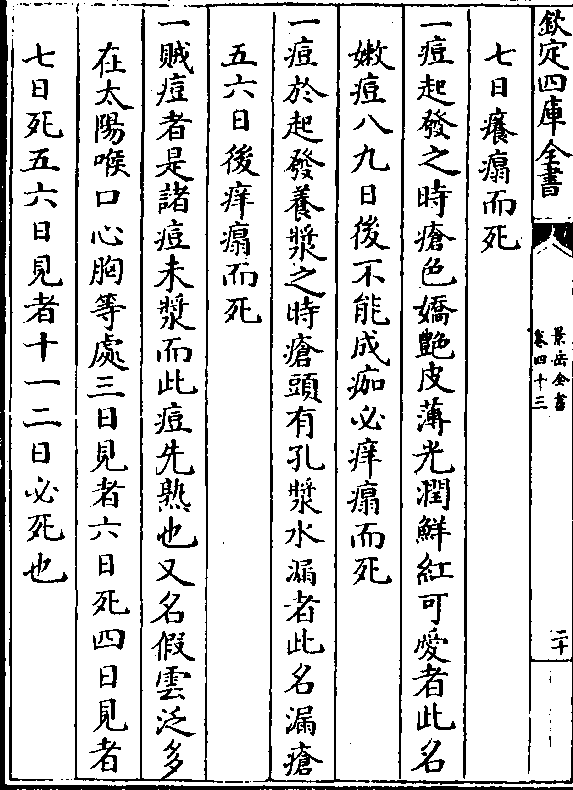 欽定四庫全書
景岳全書
卷四十三
二十
七日癢瘑而死
一痘起發之時瘡色嬌艶皮薄光潤鮮紅可愛者此名
嫩痘八九日後不能成痂必痒瘑而死
一痘於起發養漿之時瘡頭有孔漿水漏者此名漏瘡
五六日後痒瘑而死
一賊痘者是諸痘未漿而此痘先熟也又名假雲泛多
在太陽喉口心胸等處三日見者六日死四日見者
七日死五六日見者十一二日必死也